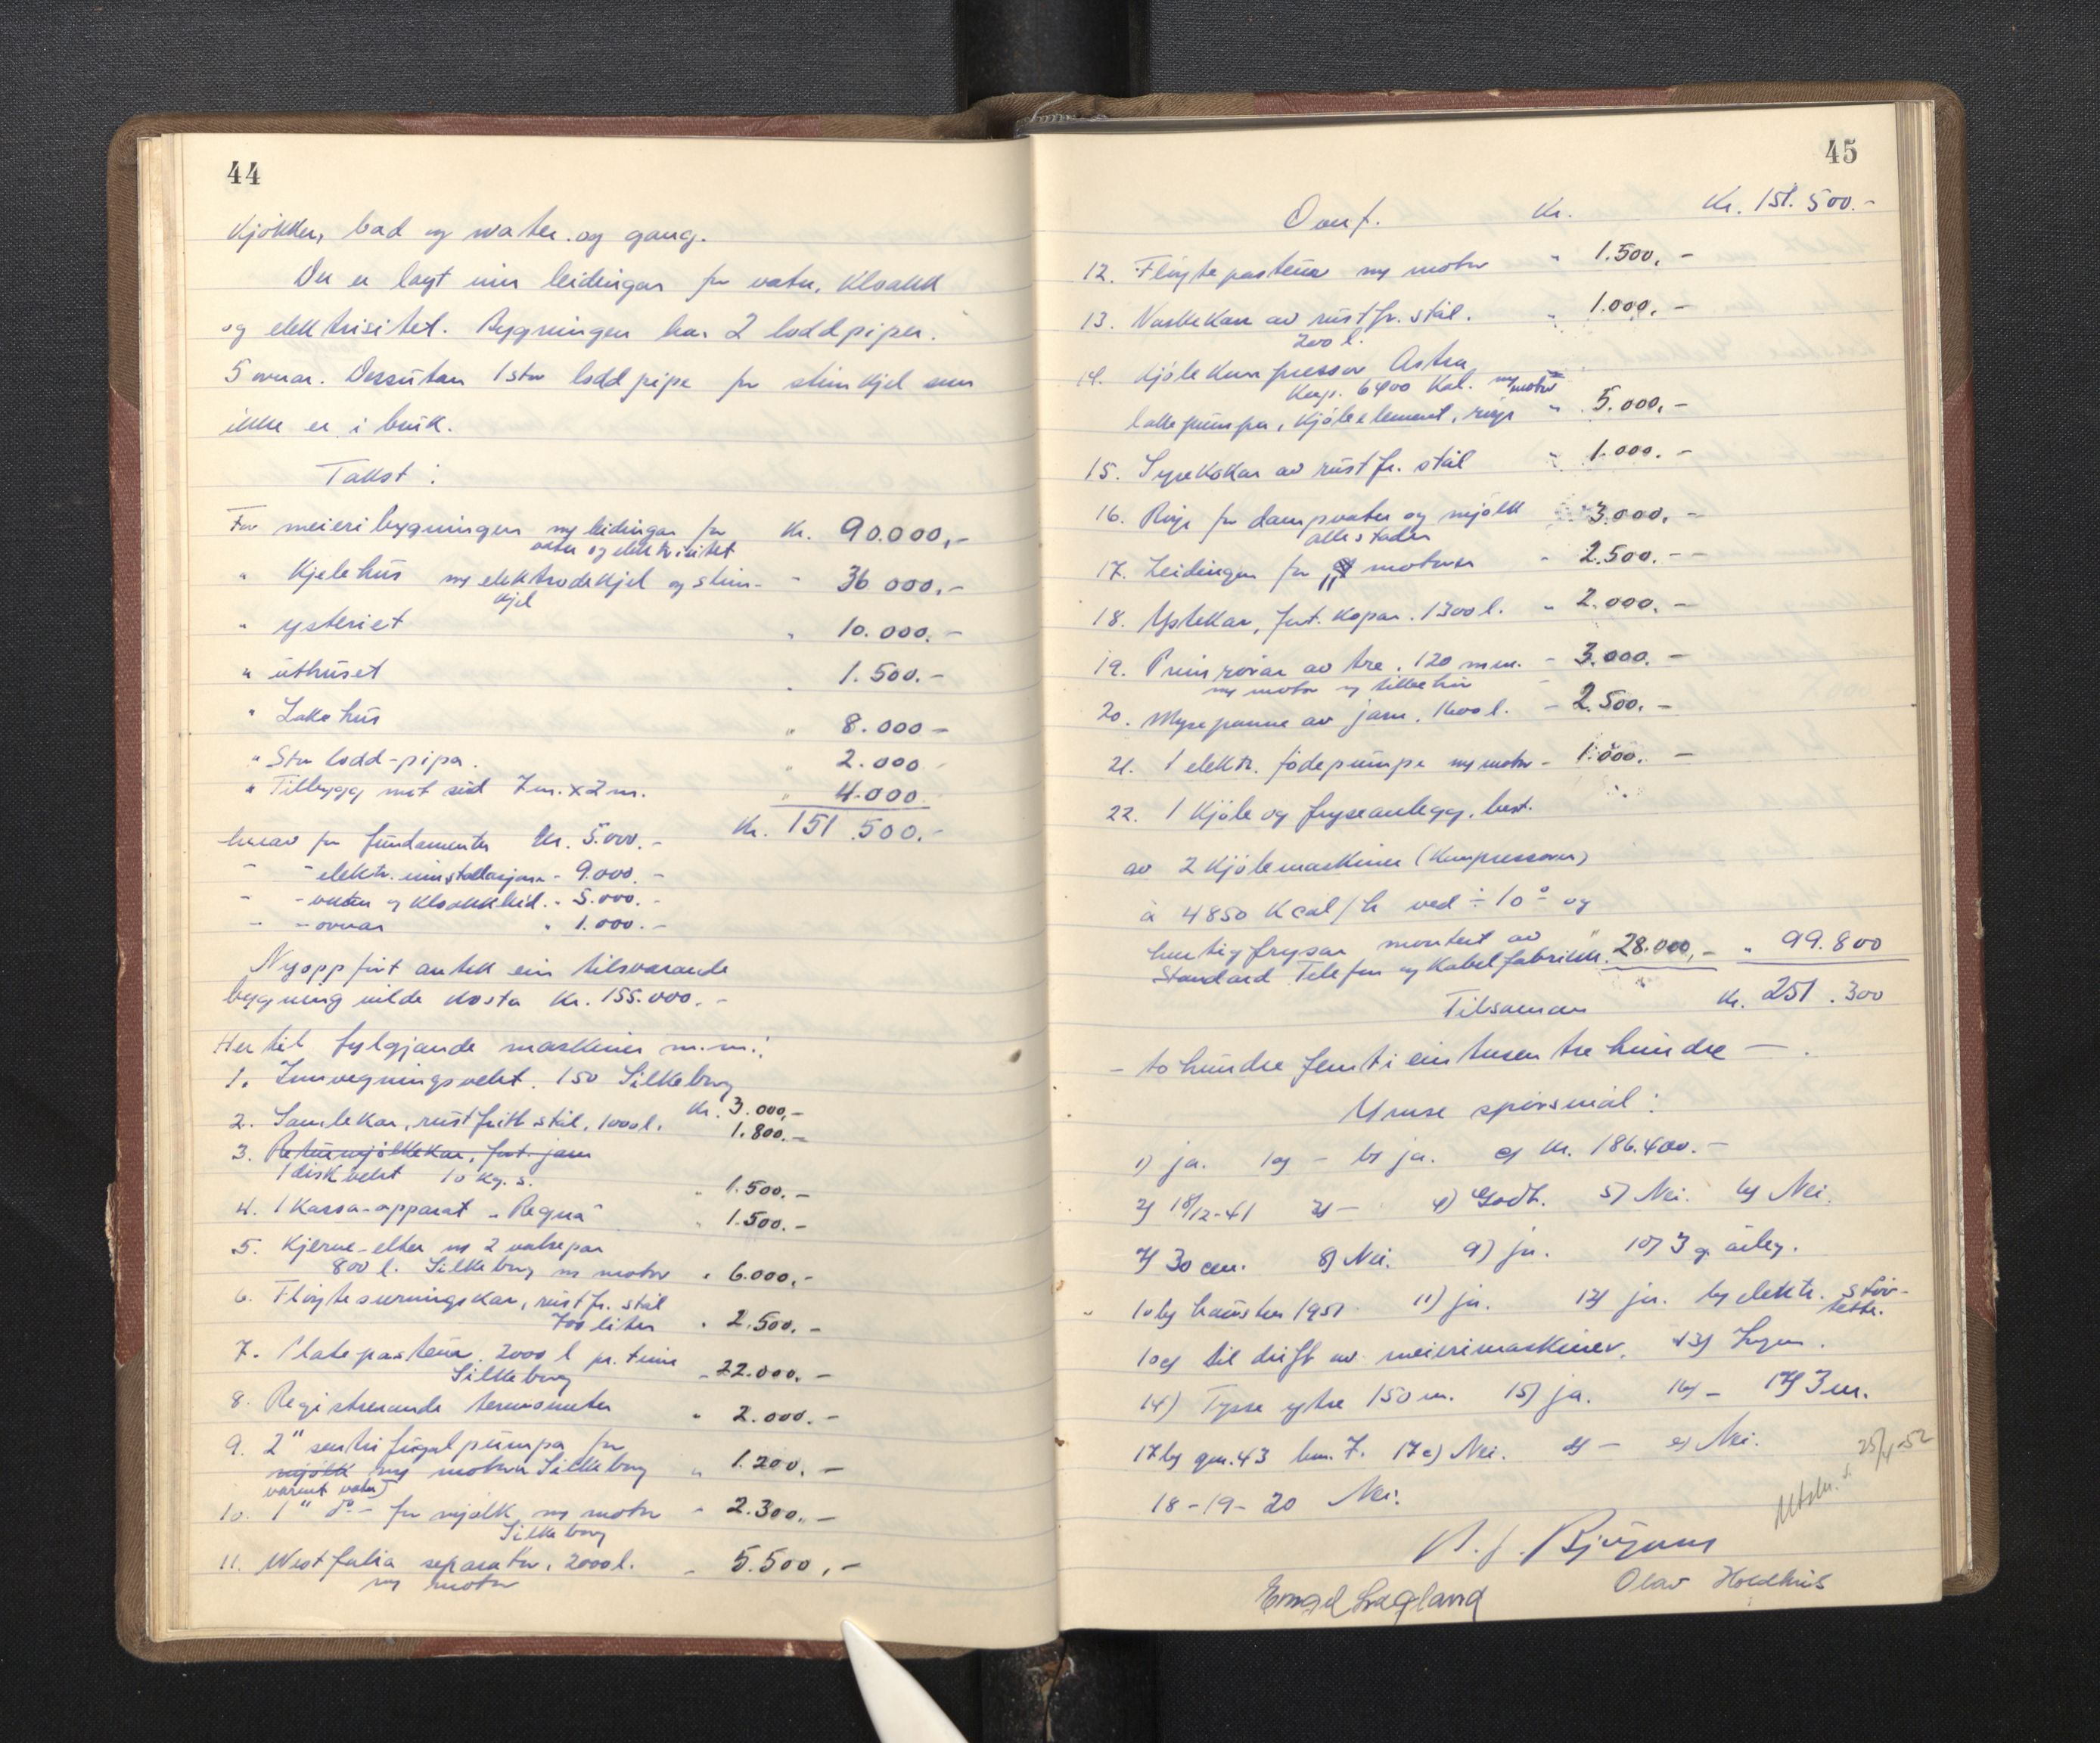 44
Kjökken, bad og water og gang.
Der er lagt inn leidingar for vatn, Kloakk
og elektrisitet. Bygningen har 2 loddpiper.
5 ovnar. Dessutan 1 stor loddpipe for stimkjel som
ikke er i bruk.
Takst:
For meieribygningen og leidingar for Kr. 90.000,-
vatn og elektrisitet
" Kjelehus og elektrodekjel og stim- " 36 000,-
kjel
" ysteriet " 10.000.-
" uthuset " 1.500.-
" Lakehus " 8.000-
" Stor lodd-pipa. " 2.000
" Tilbygg mot sud 7 m. x 2 m. " 4.000
Kr. 151.500.-
herav for fundamenter Kr. 5.000.-
" - elektr. installasjonen - 9.000.-
" - vatn og Kloakkleid. - 5.000.-
- - ovnar " 1.000.-
Nyoppfört antek ein tilsvarande
bygning vilde kosta kr. 155.000.-
Her til fylgjande maskiner m.m.:
1. Innvegningsvekt. 150 Silkeborg
Kr. 3.000,-
2. Samlekar, rustfritt stål, 1000 l. 1.800.-
3. Returmjölkekar, fort. jarn
1 diskvekt 10 kg. s. " 1.500.-
4. 1 Kassa-apparat "Regna" " 1.500.-
5. Kjerne-elter m 2 valsepar
800 l. Silkeborg m motor " 6.000,-
6. Flöytesurningskar, rustfr. stål
700 liter " 2.500,-
7. Platepasteur. 2000 l pr. time
Silkeborg - 22.000,-
8. Registrerande termometer " 2.000.-
9. 2" sentrifugalpumpa for
mjölk og motorer Silkeborg " 1.200,-
varmt vatn
10. 1" do - for mjölk m motor " 2.300,-
Silkeborg
11. Westfalia separator, 2000 l. - 5.500,-
m motor
45
Overf. Kr. Kr. 151.500.-
12. Flöytepasteur m motor " 1.500,-
13. Vaskekar av rustfr. stål. " 1.000,-
200 l.
14. Kjölekompressor Astra
Kap. 6400 Kal. m motor
lakepumpa, Kjöleelement, röyr " 5.000,-
15. Syrekokar av rustfr. stål " 1.000,-
16. Röyr for damp vatn og mjölk 3.000,-
alle stader
17. Leidingar for 11 motorer - 2.500.--
18. Ystekar, fort. kopar. 1300 l. " 2.000.-
19. Primrörar av tre. 120 mm. - 3.000.-
m motor og tilbehör
20. Mysepanne av jarn. 1600 l. - 2.500.-
21. 1 elektr. födepumpe m motor - 1.000.-
22. 1 Kjöle og fryseanlegg, best.
av 2 Kjölemaskiner (Kompressorer)
à 4850 Kcal/h ved ÷ 10° og
hurtigfrysar montert av
Standard Telefon og Kabelfabrikk. " 28.000,- " 99.800
Tilsaman Kr. 251.300
- to hundre femti ein tusen tre hundre -.
Ymse spörsmål:
1) ja. 1a) - b) ja. c) Kr. 186.400.-
2) 18/12-41 3) - 4) Godt. 5) Nei. 6) Nei.
7) 30 cm. 8) Nei. 9) ja. 10) 3 g. årleg.
10 b) hausten 1951. 11) ja. 12) ja. b) elektr. Stöv-
tette.
10 c) til drift av meierimaskiner. 13) Ingen.
14) Tysse ytre 150 m. 15) ja. 16) - 17) 3 m.
17 b) gnr. 43 bnr. 7. 17 c) Nei. d) - e) Nei.
18-19-20 Nei.
Utskr. d. 25/1-52
Olav Holdhus